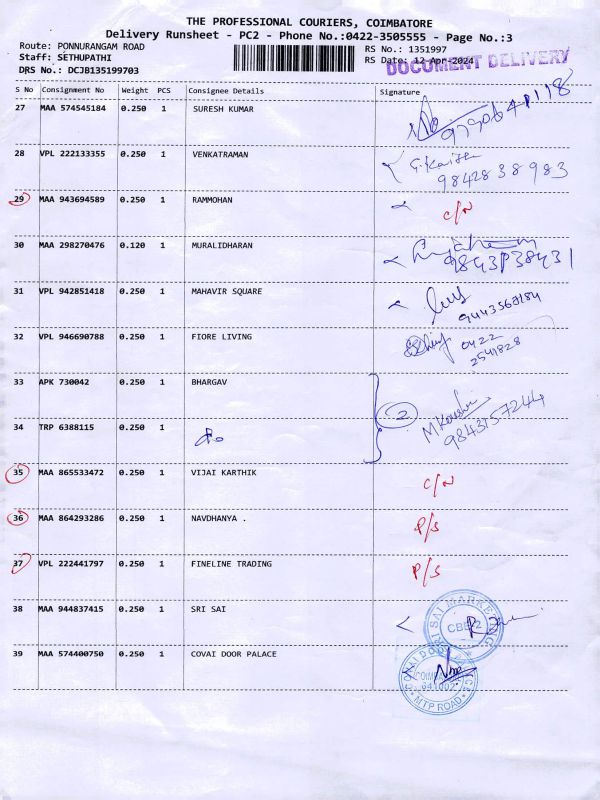 THE PROFESSIONAL COURIERS, COIMBATORE
Delivery Runsheet - PC2 - Phone No.:0422-3505555 - Page No.:3
Route: PONNURANGAM ROAD
RS No.: 1351997
Staff: SETHUPATHI
RS Date: 12-Apr-2024
DOCUMENT DELIVERY
DRS No.: DCJB135199703
S No Consignment No Weight PCS Consignee Details Signature
27 MAA 574545184 0.250 1 SURESH KUMAR
28 VPL 222133355 0.250 1 VENKATRAMAN
9842838983
29 MAA 943694589 0.250 1 RAMMOHAN C/N
30 MAA 298270476 0.120 1 MURALIDHARAN
31 VPL 942851418 0.250 1 MAHAVIR SQUARE
9443568184
32 VPL 946690788 0.250 1 FIORE LIVING 0422
2541828
33 APK 730042 0.250 1 BHARGAV
2
34 TRP 6388115 0.250 1
9843157244
35 MAA 865533472 0.250 1 VIJAI KARTHIK C/N
36 MAA 864293286 0.250 1 NAVDHANYA . P/S
37 VPL 222441797 0.250 1 FINELINE TRADING P/S
38 MAA 944837415 0.250 1 SRI SAI
SRI SAI MARKETING
CBE-2
39 MAA 574400750 0.250 1 COVAI DOOR PALACE
641002
MTP ROAD